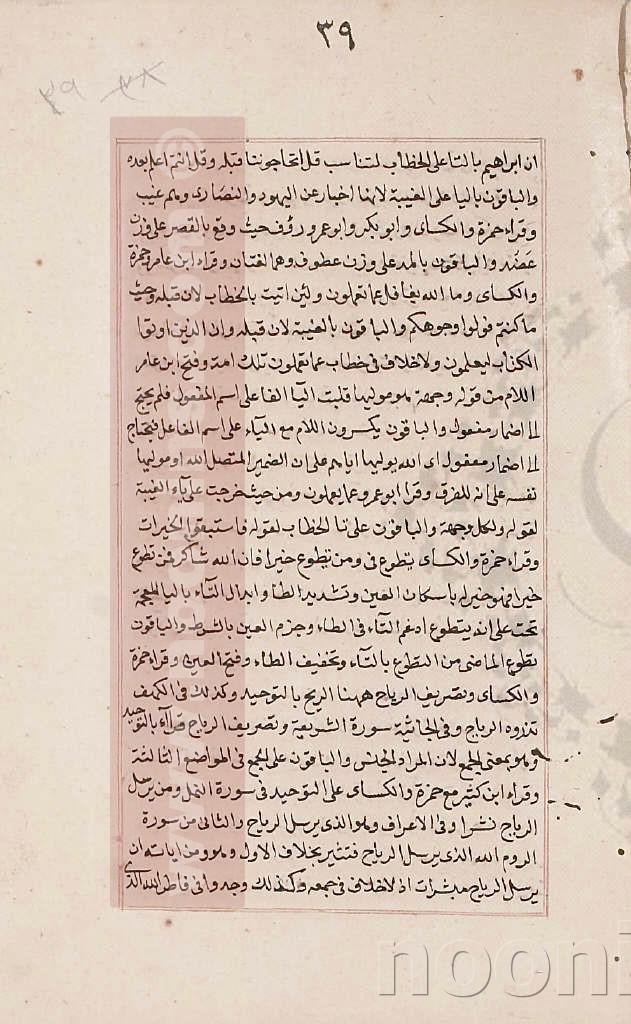 ٣٩
ان ابراهيم بالتا على الخطاب لتناسب قل اتحاجوننا قبله وقل انتم اعلم بعده
والباقون باليا على الغيبة لانها اخبار عن اليهود والنصارى وهم غيب
وقراء حمزة والكساى وابو بكر وابو عمرو رؤف حيث وقع بالقصر على وزن
عضد والباقون بالمد على وزن عطوف وهما لغتان وقراء ابن عامر وحمزة
والكساى وما الله بغافل عما تعملون ولئن اتيت بالخطاب لان قبله وحيث
ما كنتم فولوا وجوهكم والباقون بالغيبة لان قبله وان الذين اوتوا
الكتاب ليعلمون ولا خلاف فى خطاب عما تعملون تلك امة وفتح ابن عامر
اللام من قوله وجهة هو موليها قلبت اليآ الفا على اسم المفعول فلم يحتج
الى اضمار مفعول والباقون يكسرون اللام مع اليآء على اسم الفاعل فيحتاج
الى اضمار مفعول اى الله يوليها اياهم على ان الضمير المتصل الله او موليها
نفسه على انه للفرق وقرا ابو عمرو عما يعملون ومن حيث خرجت على ياء الغيبة
لقوله ولكل وجهة والباقون على تا الخطاب لقوله فاستبقوا الخيرات
وقراء حمزة والكساى يتطوع فى ومن تطوع خيرا فان الله شاكر فمن تطوع
خيرا فهو خير له باسكان العين وتشديد الطا وابدال التآء باليا المعجمة
تحت على انه يتطوع ادغم التآء فى الطاء وجزم العين بالشرط والباقون
تطوع الماضى من التطوع بالتآء وتخفيف الطاء وفتح العين وقراء حمزة
والكساى وتصريف الرياح ههنا الريح بالتوحيد وكذلك فى الكهف
تذروه الرياح وفى الجاثية سورة الشريعة وتصريف الرياح قرآء بالتوحيد
وهو بمعنى الجمع لان المراد الجنس والباقون على الجمع فى المواضع الثالثة
وقراء ابن كثير مع حمزة والكساى على التوحيد فى سورة النمل ومن يرسل
الرياح نشرا وفى الاعراف وهو الذى يرسل الرياح والثانى من سورة
الروم الله الذى يرسل الرياح فتثير بخلاف الاول وهو ومن اياته ان
يرسل الرياح مبشرات اذ لا خلاف فى جمعه وكذلك وحدوا فى فاطر الله الذى
nooni